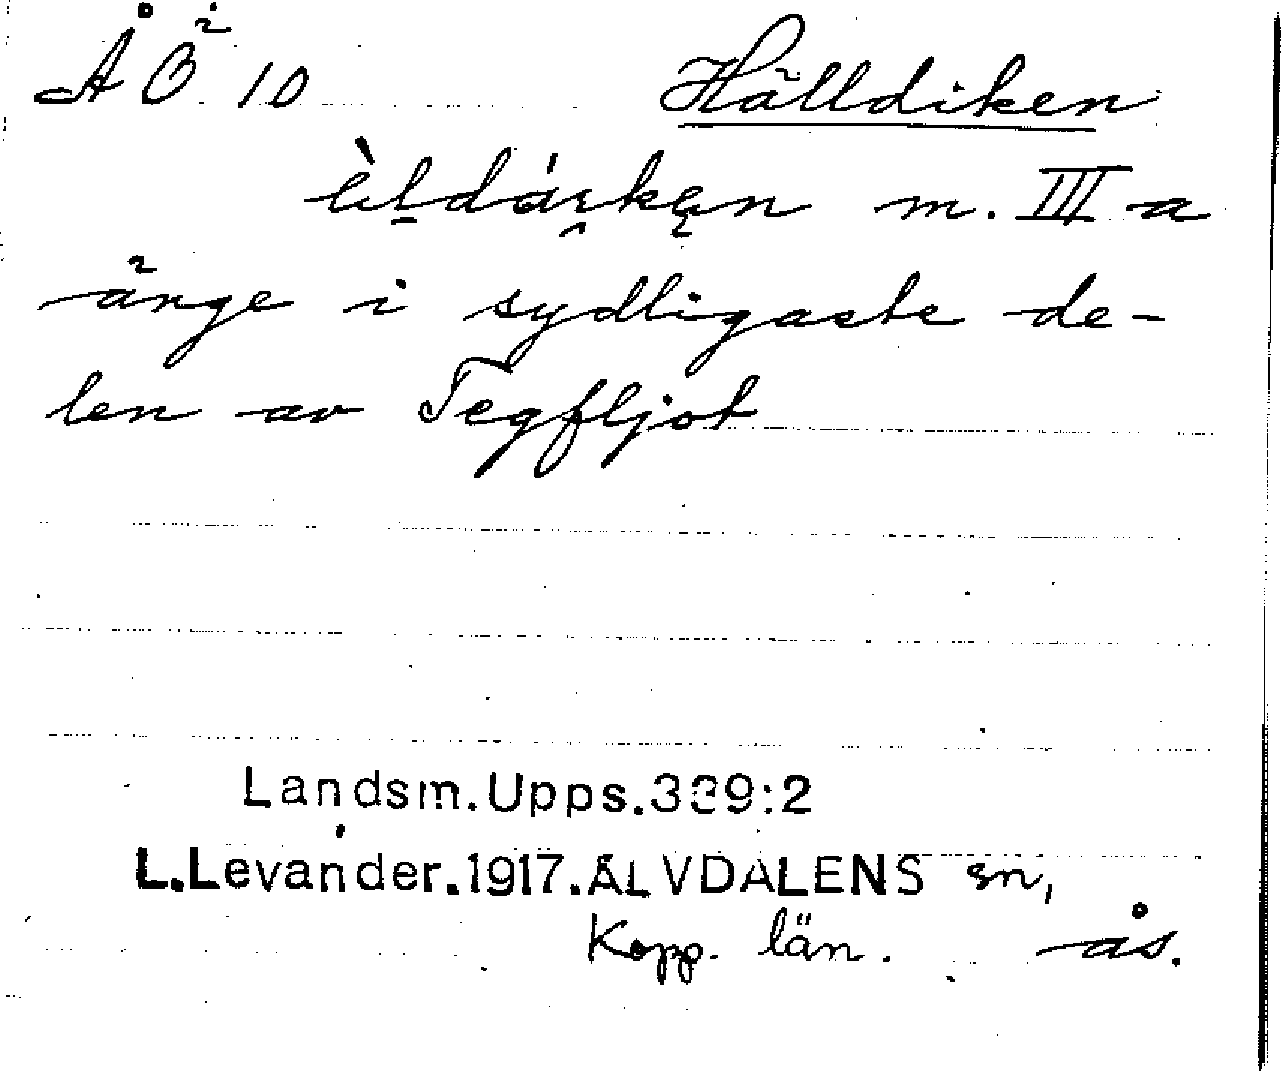 ÅÖ 10 Hälldiken
m. III a
änge i sydligaste de-
len av Tegfljot
Landsm.Upps.339:2
L.Levander.1917.ÄLVDALENS sn,
Kopp. län. ås.